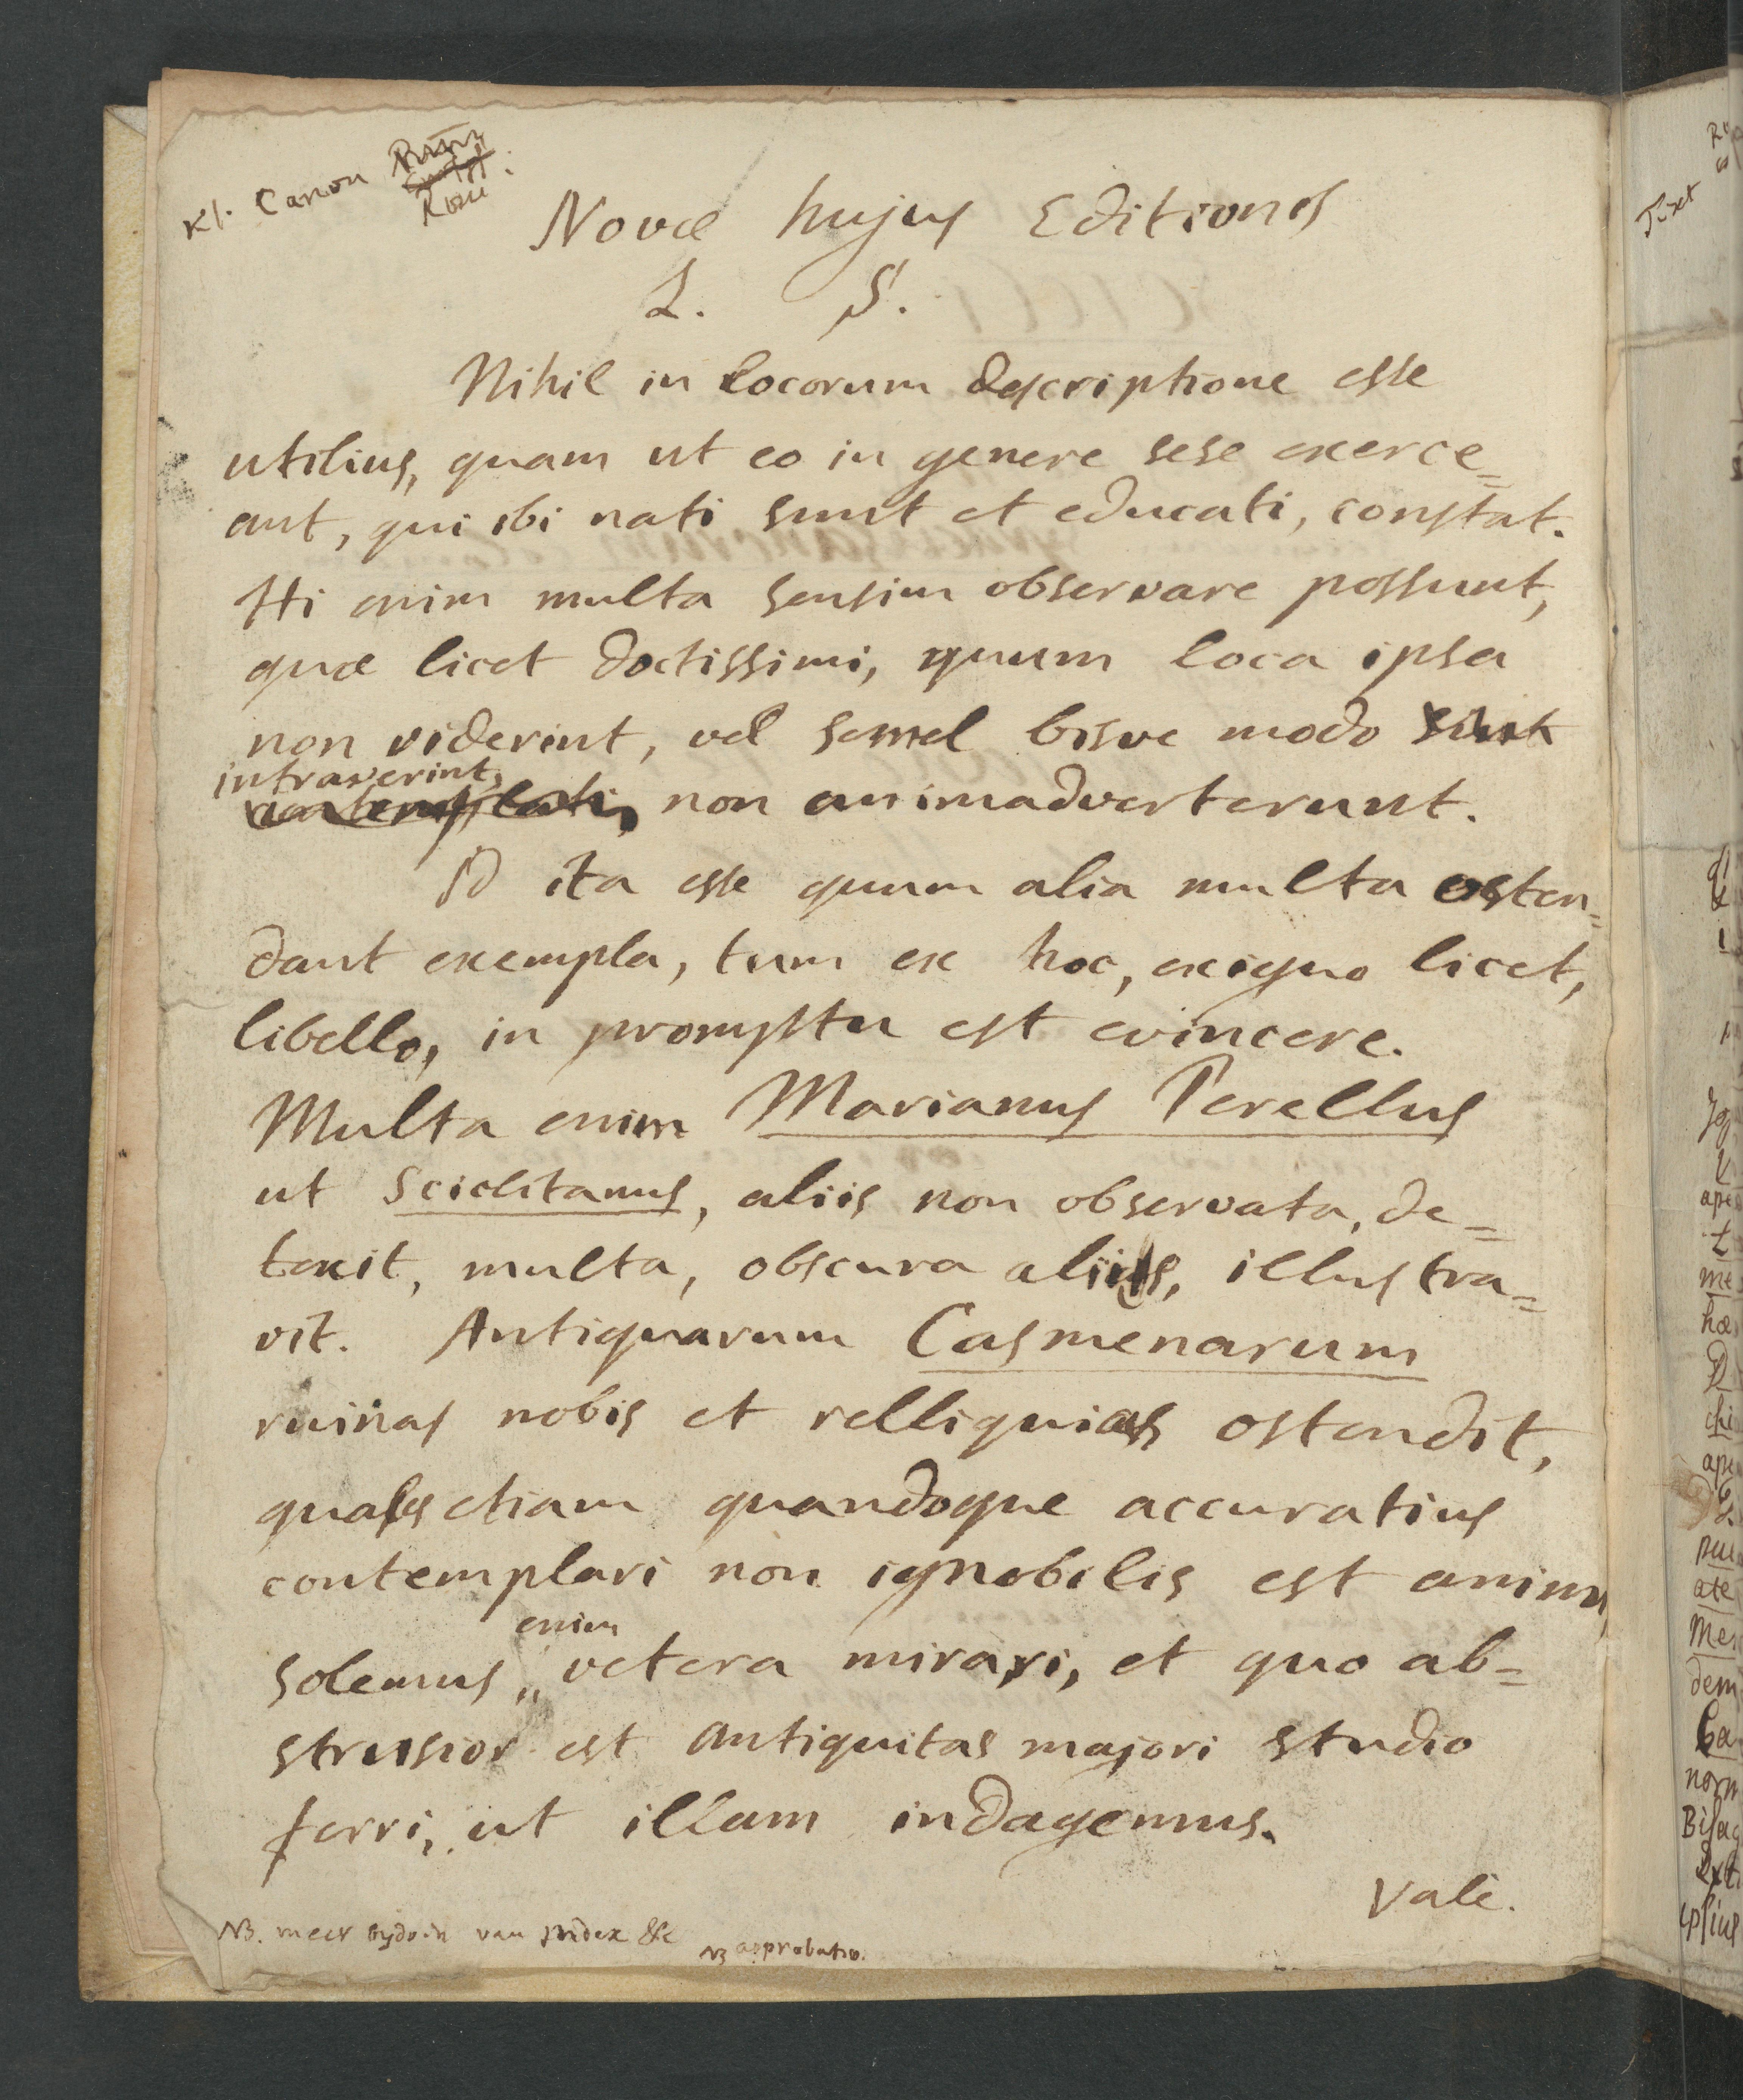 Kl. Canon
Rom
Novæ hujus Editionis
L. S.
Nihil in locorum descriptione esse
utilius, quam ut eo in genere sese exerce=
ant, qui ibi nati sunt et educati, constat.
Hi enim multa sensim observare possunt,
quæ licet doctissimi, quum loca ipsa
non viderint, vel semel bisve modo sint
intraverint,
contemplati, non animadverterunt.
Id ita esse quum alia multa osten=
dant exempla, tum ex hoc, exiguo licet,
libello, in promptu est evincere.
Multa enim Marianus Perellus
ut Sciclitanus, aliis non observata, de=
texit, multa, obscura aliis, illustra=
vit. Antiquarum Casmenarum
ruinas nobis et relliquias ostendit,
quales etiam quandoque accuratius
contemplari non ignobilis est animi,
enim
solemus vetera mirari, et quo ab=
strusior est antiquitas majori studio
ferri, ut illam indagemus.
Vale.
NB. meer van Index &c
NB approbatio.
Text